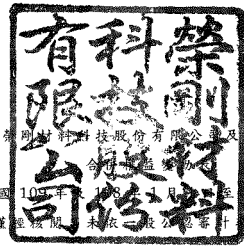 榮剛材料
科技股份
有限公司
榮剛材料科技股份有限公司及
合併 益
國 109 年 108 1 月 至
僅經核閱 未依 般公認審計